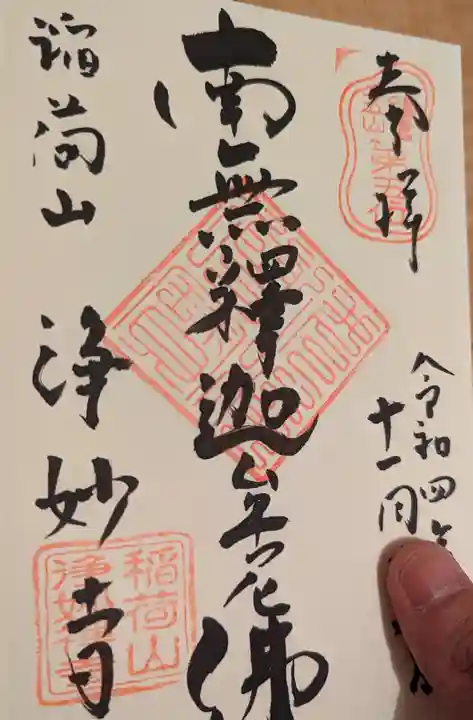 奉拝
令和四年
十一月
南無釋迦牟尼佛
稲荷山
浄妙寺
稲荷山
浄妙寺